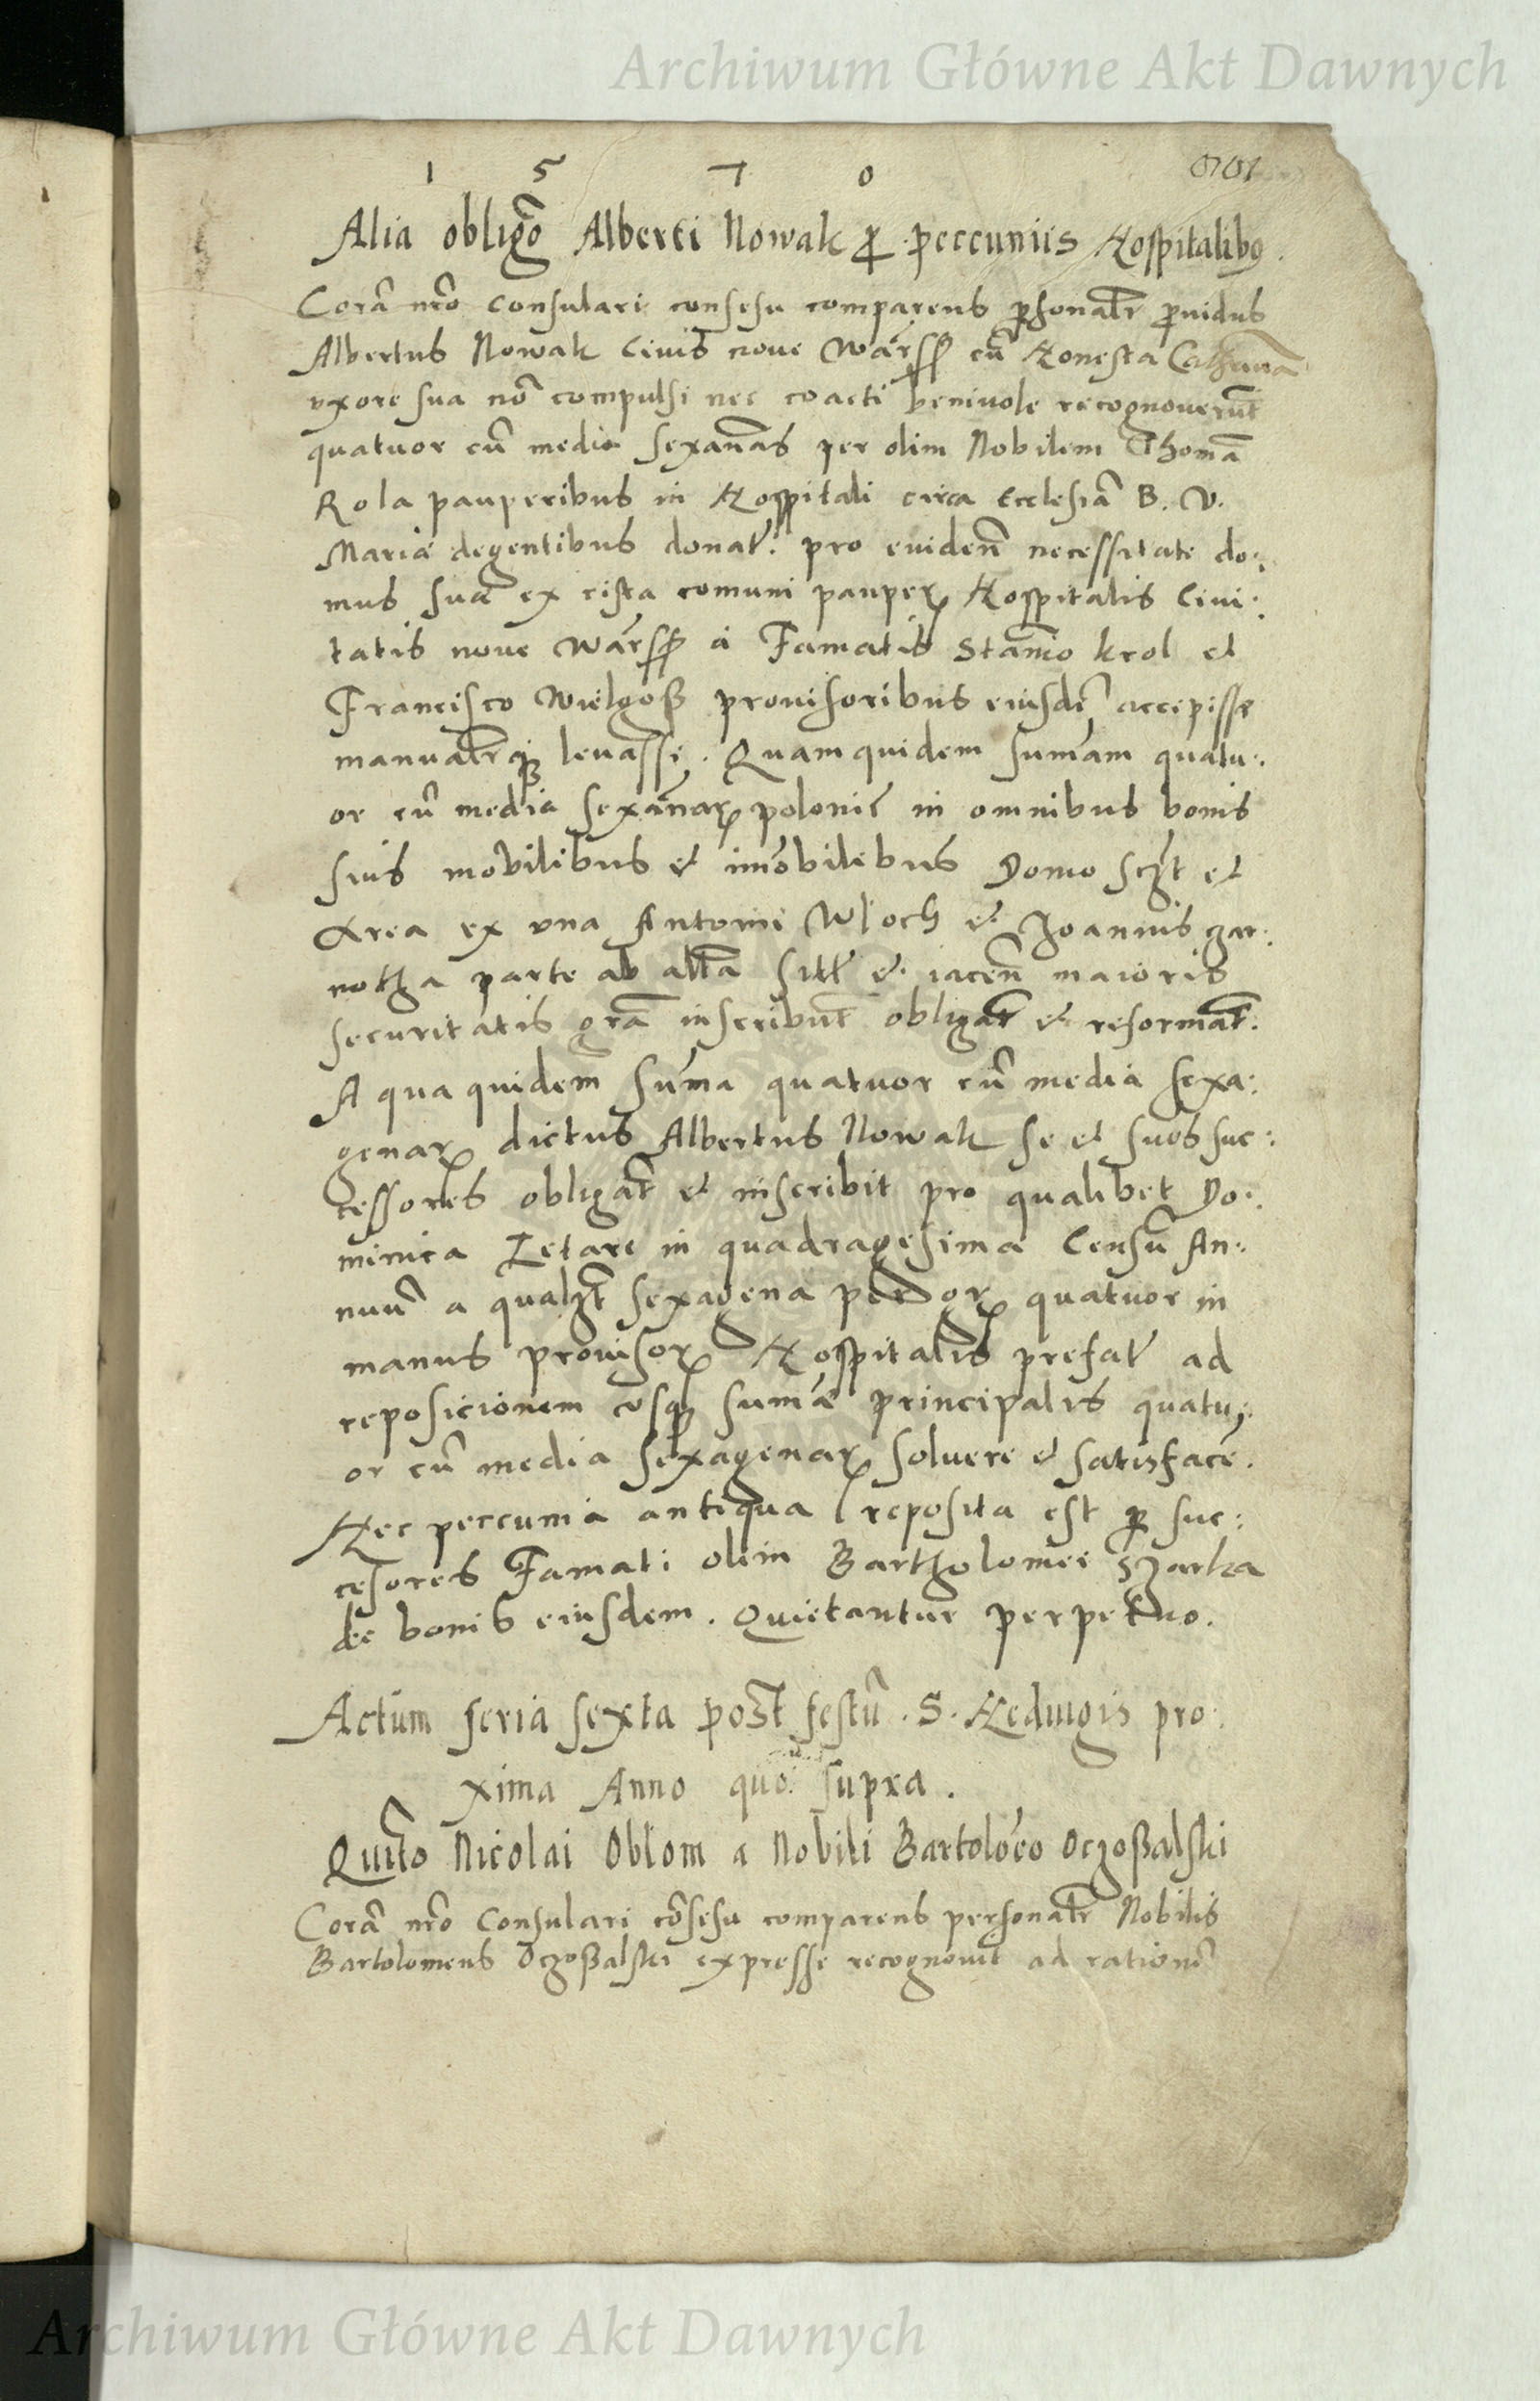 Archiwum Główne Akt Dawnych
1 5 7 0
Alia oblig͠o Alberti Nowak ꝓ peccuniis Hospitalibꝯ.
Corā nr͠o Consulari consesu comparens ꝑsonalr̄ ꝓuidus
Albertus Nowak Civis nove Warsꝭ cū Honesta Catherina
vxore sua nō compulsi nec coacti benivole recognoverūt
quatuor cū media sexanas per olim Nobilem Thomā
Rola pauperibus in Hospitali circa Ecclesiā B. V.
Mariæ degentibus donat̄. pro eviden̄ necessitate do:
mus suæ ex cista comuni pauperꝝ Hospitalis Civi:
tatis nove Warsꝭ a Famatis Stan̄io Krol et
Francisco Wielgoß provisoribus eiusdē accepisse
manualrqꝫ levasse. Quam quidem sum̄am quatu:
or cū media sexan̄arꝝ polonic̄ in omnibus bonis
suis mobilibus et im̄obilibus Domo sczt et
Area ex vna Antonii Wloch et Joannis Czar:
notha parte ab alt̄a sitt̄ et iacen̄ maioris
securitatis grā inscribūt obligāt et reformāt.
A qua quidem sum̄a quatuor cū media sexa:
genarꝝ dictus Albertus Nowak se et suos suc:
cessores obligāt et inscribit pro qualibet Do:
minica Letare in quadragesima Censū An:
nuū a qualzt sexagena per gꝝ quatuor in
manus provisorꝝ Hospitalis prefat̄ ad
reposicionem usqꝫ sum̄æ principalis quatu:
or cū media sexagenarꝝ solvere et satisfacē.
Hec peccunia antiqua reposita est ꝑ suc:
cesores Famati olim Bartholomei Szarka
de bonis eiusdem. Quietantur perpetuo.
Actum feria sexta post festū S. Hedvigis pro:
xima Anno quo supra.
Quit͠o Nicolai Oblom a Nobili Bartolom̄eo Oczoßalski
Corā nr͠o Consulari cōsesu comparens personalr̄ Nobilis
Bartolomeus Oczoßalski expresse recognovit ad rationē
Archiwum Główne Akt Dawnych